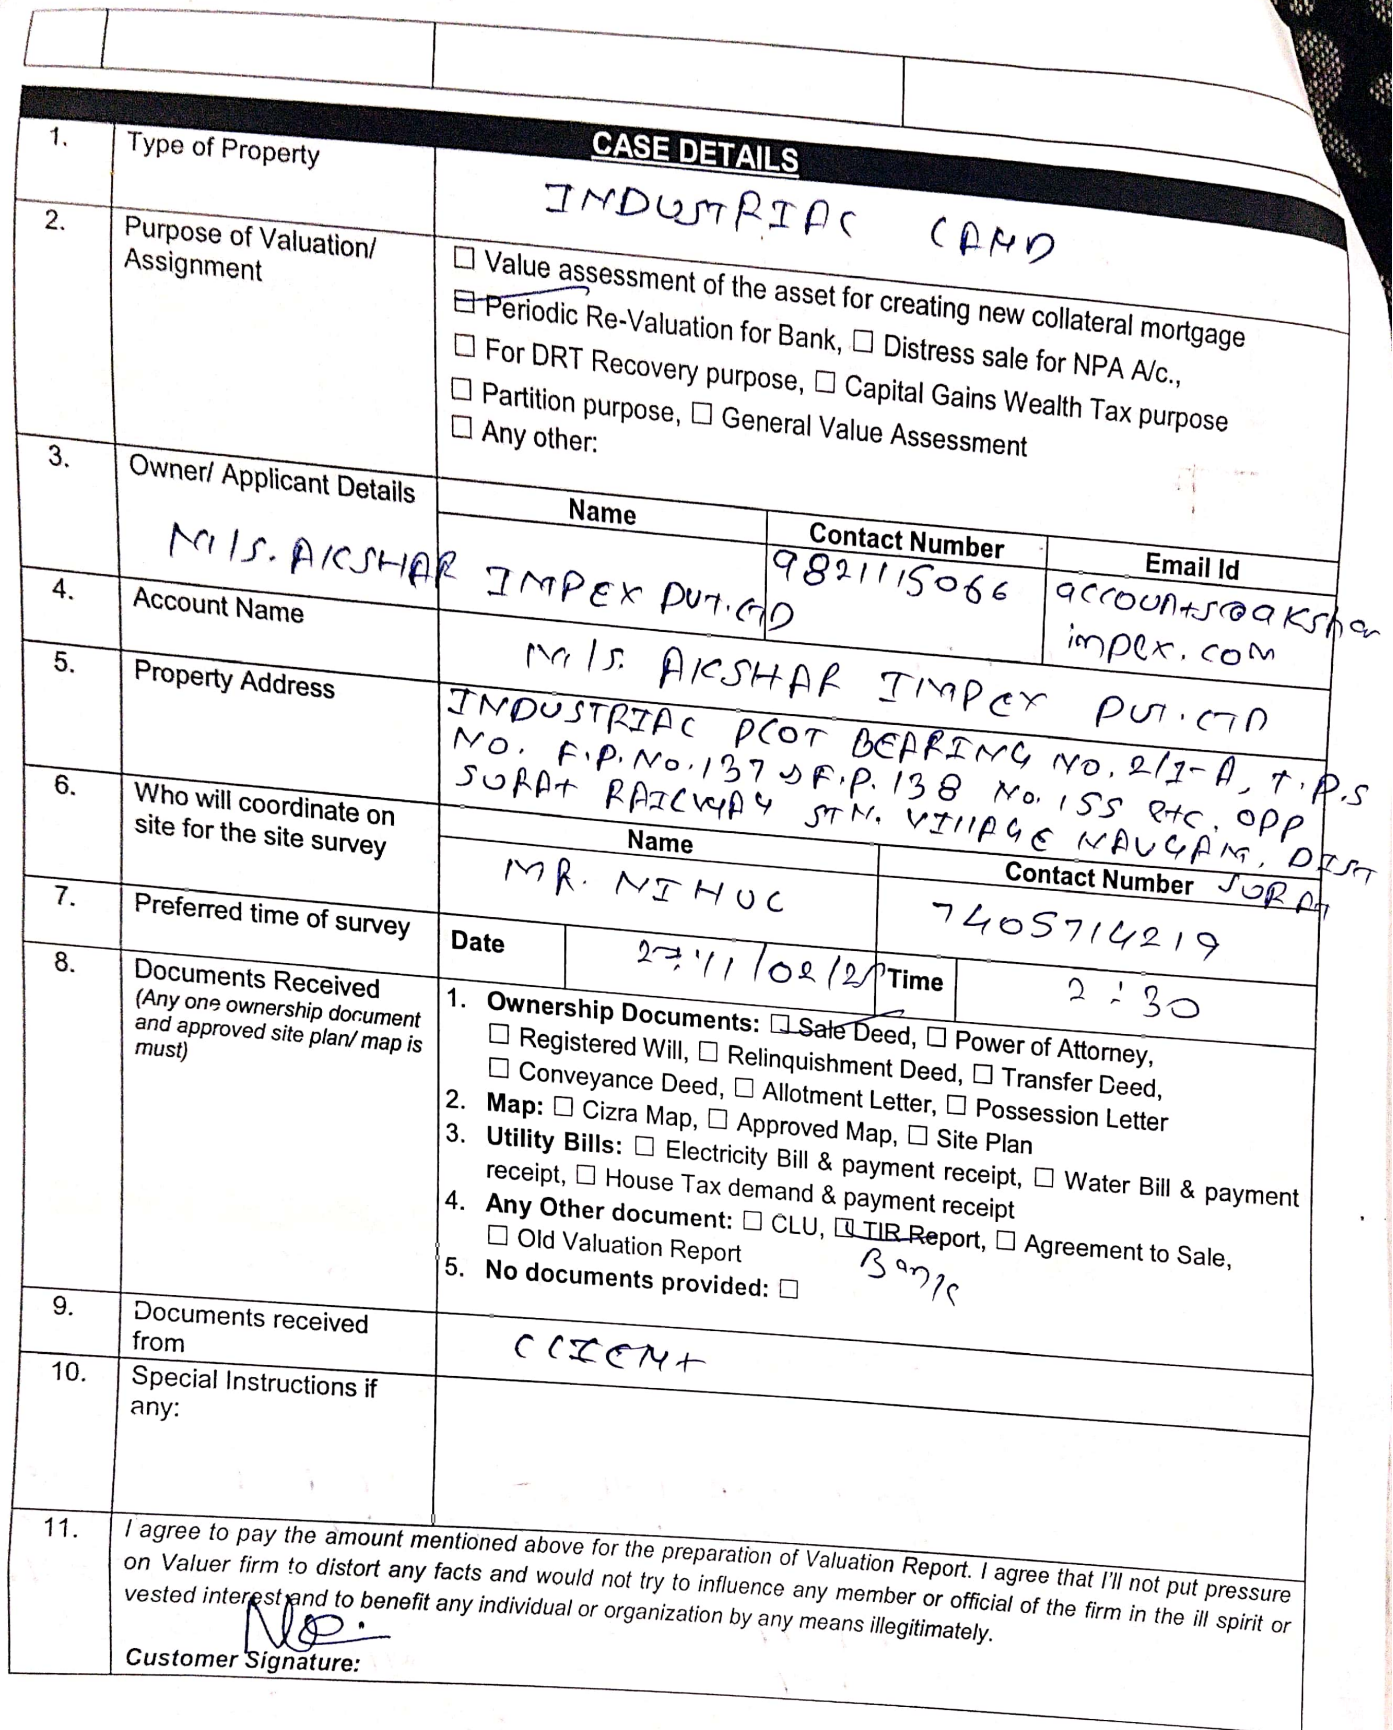 CASE DETAILS
1. Type of Property INDUSTRIAL LAND
2. Purpose of Valuation/ Assignment
☐ Value assessment of the asset for creating new collateral mortgage
☐ Periodic Re-Valuation for Bank, ☐ Distress sale for NPA A/c.,
☐ For DRT Recovery purpose, ☐ Capital Gains Wealth Tax purpose
☐ Partition purpose, ☐ General Value Assessment
☐ Any other:
3. Owner/ Applicant Details
Name Contact Number Email Id
M/S. AKSHAR IMPEX PVT. LTD 9821115066 accounts@akshar
impex.com
4. Account Name M/S. AKSHAR IMPEX PVT. LTD
5. Property Address INDUSTRIAL PLOT BEARING NO. 2/1-A, T.P.S
NO. F.P. No. 137 & F.P. 138 No. 155 etc. OPP
SURAT RAILWAY STN. VILLAGE NAVGAM, DIST
SURAT
6. Who will coordinate on
site for the site survey
Name Contact Number
MR. NIHUL 7405714219
7. Preferred time of survey Date /02/25 Time 2:30
8. Documents Received
(Any one ownership document
and approved site plan/ map is
must)
1. Ownership Documents: ☐ Sale Deed, ☐ Power of Attorney,
☐ Registered Will, ☐ Relinquishment Deed, ☐ Transfer Deed,
☐ Conveyance Deed, ☐ Allotment Letter, ☐ Possession Letter
2. Map: ☐ Cizra Map, ☐ Approved Map, ☐ Site Plan
3. Utility Bills: ☐ Electricity Bill & payment receipt, ☐ Water Bill & payment
receipt, ☐ House Tax demand & payment receipt
4. Any Other document: ☐ CLU, ☐ TIR Report, ☐ Agreement to Sale,
☐ Old Valuation Report Bank
5. No documents provided: ☐
9. Documents received
from
CLIENT
10. Special Instructions if
any:
11. I agree to pay the amount mentioned above for the preparation of Valuation Report. I agree that I'll not put pressure
on Valuer firm to distort any facts and would not try to influence any member or official of the firm in the ill spirit or
vested interest and to benefit any individual or organization by any means illegitimately.
Customer Signature: